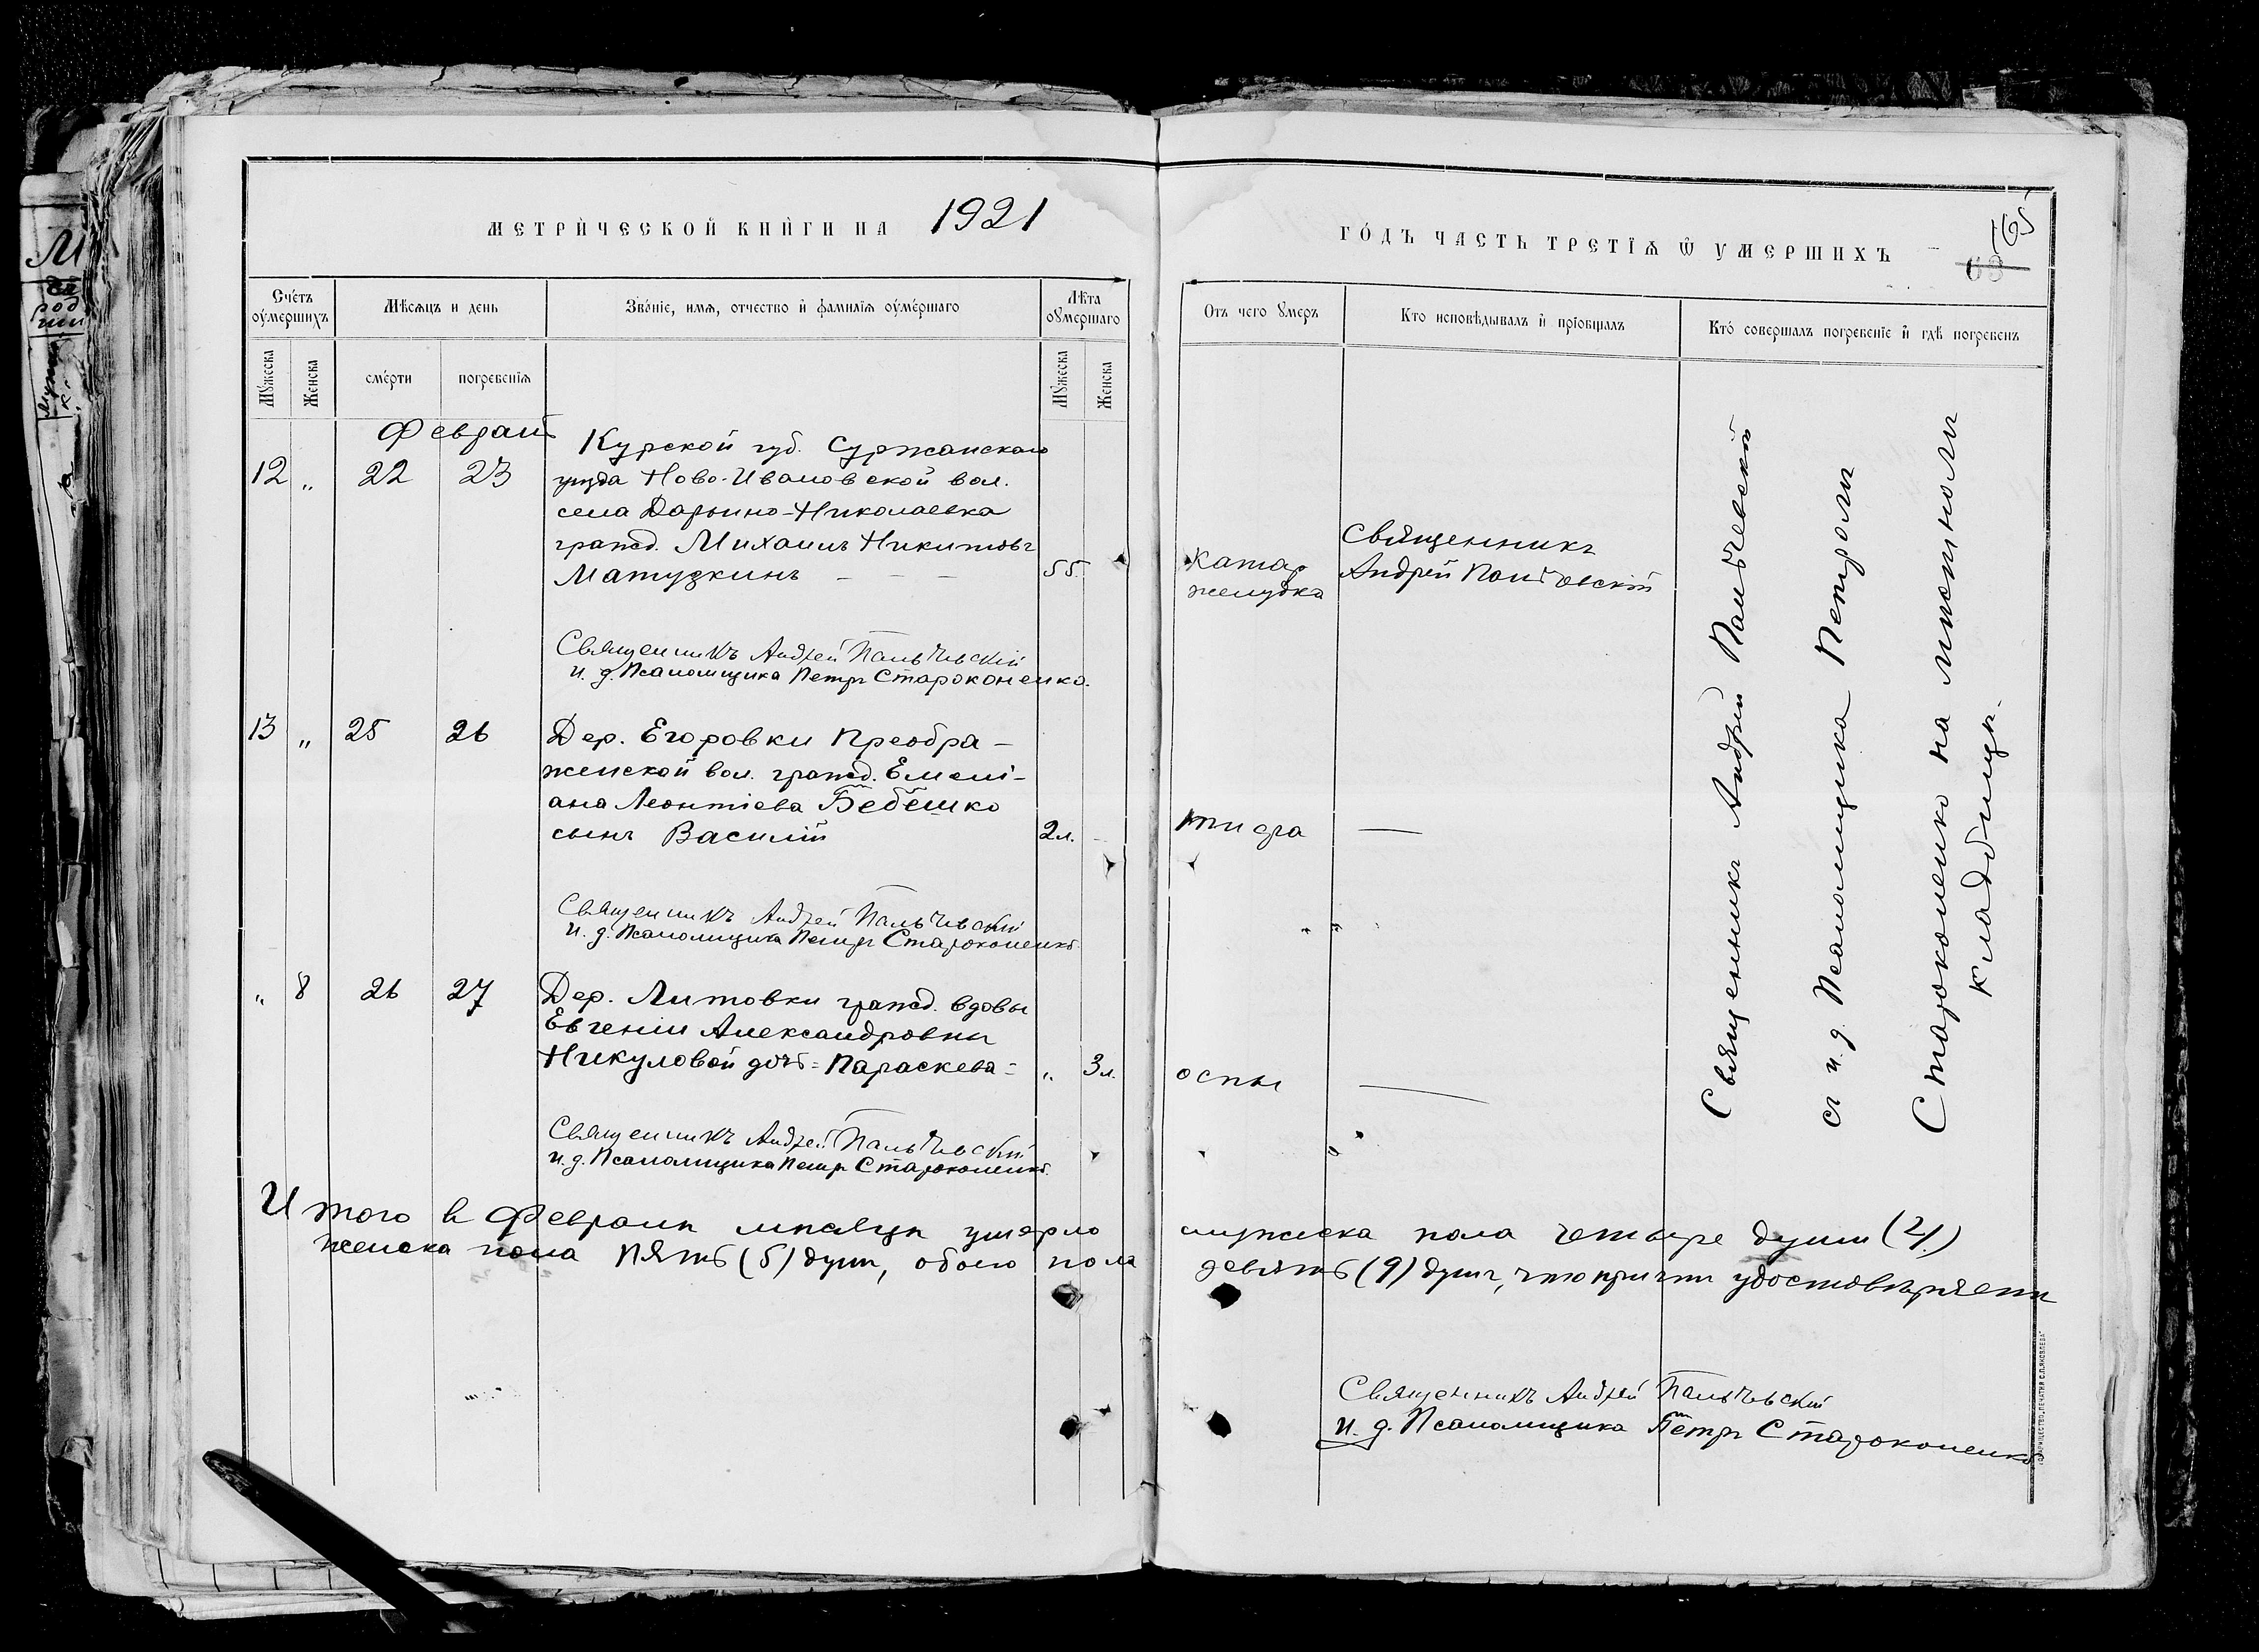 МЕТРИЧЕСКОЙ КНИГИ НА 1921
Счетъ оумершихъ
Мѣсяцъ и день
Званіе, имя, отчество и фамилія оумершаго
Лѣта оумершаго
Мужеска
Женска
смерти
погребенія
Мужеска
Женска
Февраль
12 „ 22 23 Курской губ. Суржанскаго
уѣзда Ново-Ивановской вол.
села Дарьино-Николаевка
гражд. Михаилъ Никитовъ
Матузкинъ – – – 55
Священникъ Андрей Пальчевскій
и. д. Псаломщика Петръ Староконенко.
13 „ 25 26 Дер. Егоровки Преобра-
женской вол. гражд. Емелі-
ана Леонтіева Бебешко
сынъ Василій 2 л.
Священникъ Андрей Пальчевскій
и. д. Псаломщика Петръ Староконенко.
„ 8 26 27 Дер. Литовки гражд. вдовы
Евгеніи Александровны
Никуловой дочь = Параскева = „ 3 л.
Священникъ Андрей Пальчевскій
и. д. Псаломщика Петръ Староконенко.
Итого в Февралѣ мѣсяцѣ умерло
женска пола пять (5) душъ, обоего пола
ГОДЪ ЧАСТЬ ТРЕТІЯ Ѿ УМЕРШИХЪ
65
Отъ чего умеръ
Кто исповѣдывалъ и пріобщалъ
Кто совершалъ погребеніе и гдѣ погребенъ
Катар
желудка
Священникъ
Андрей Пальчевскій
тифа —
оспы —
Священникъ Андрей Пальчевскій
съ и. д. Псаломщика Петромъ
Староконенко на мѣстномъ
кладбищѣ.
мужеска пола четыре души (4)
девять (9) душъ, что причтъ удостовѣряетъ
Священникъ Андрей Пальчевскій
и. д. Псаломщика Петръ Староконенко